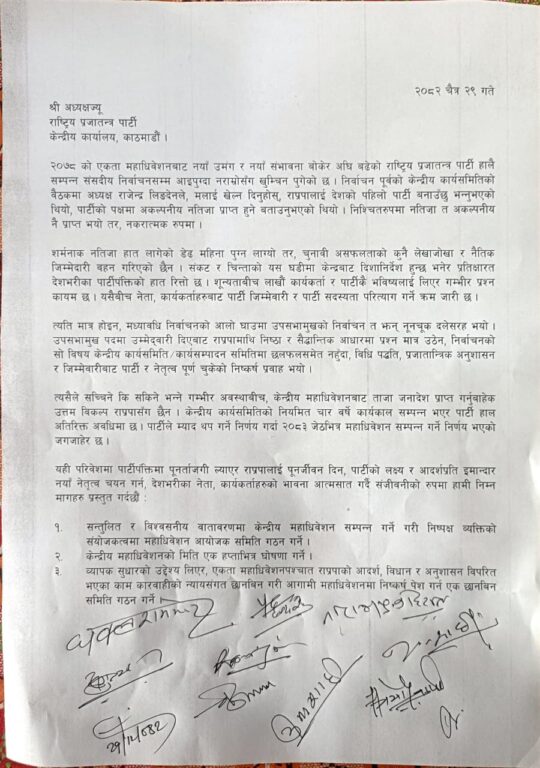 २०८२ चैत्र २९ गते
श्री अध्यक्षज्यू
राष्ट्रिय प्रजातन्त्र पार्टी
केन्द्रीय कार्यालय, काठमाडौं ।
२०७८ को एकता महाधिवेशनबाट नयाँ उमंग र नयाँ संभावना बोकेर अघि बढेको राष्ट्रिय प्रजातन्त्र पार्टी हालै
सम्पन्न संसदीय निर्वाचनसम्म आइपुग्दा नराम्रोसँग खुम्चिन पुगेको छ । निर्वाचन पूर्वको केन्द्रीय कार्यसमितिको
बैठकमा अध्यक्ष राजेन्द्र लिङदेनले, मलाई खेल्न दिनुहोस्, राप्रपालाई देशको पहिलो पार्टी बनाउँछु भन्नुभएको
थियो, पार्टीको पक्षमा अकल्पनीय नतिजा प्राप्त हुने बताउनुभएको थियो । निश्चितरुपमा नतिजा त अकल्पनीय
नै प्राप्त भयो तर, नकरात्मक रुपमा ।
शर्मनाक नतिजा हात लागेको डेढ महिना पुग्न लाग्यो तर, चुनावी असफलताको कुनै लेखाजोखा र नैतिक
जिम्मेदारी बहन गरिएको छैन । संकट र चिन्ताको यस घडीमा केन्द्रबाट दिशानिर्देश हुन्छ भनेर प्रतिक्षारत
देशभरीका पार्टीपंक्तिको हात रित्तो छ । शून्यताबीच लाखौं कार्यकर्ता र पार्टीकै भविष्यलाई लिएर गम्भीर प्रश्न
कायम छ । यसैबीच नेता, कार्यकर्ताहरुबाट पार्टी जिम्मेवारी र पार्टी सदस्यता परित्याग गर्ने क्रम जारी छ ।
त्यति मात्र होइन, मध्यावधि निर्वाचनको आलो घाउमा उपसभामुखको निर्वाचन त झन् नूनचूक दलेसरह भयो ।
उपसभामुख पदमा उम्मेदवारी दिएबाट राप्रपामाथि निष्ठा र सैद्धान्तिक आधारमा प्रश्न मात्र उठेन, निर्वाचनको
सो विषय केन्द्रीय कार्यसमिति/कार्यसम्पादन समितिमा छलफलसमेत नहुँदा, विधि पद्धति, प्रजातान्त्रिक अनुशासन
र जिम्मेवारीबाट पार्टी र नेतृत्व पूर्ण चुकेको निष्कर्ष प्रवाह भयो ।
त्यसैले सच्चिने कि सकिने भन्ने गम्भीर अवस्थाबीच, केन्द्रीय महाधिवेशनबाट ताजा जनादेश प्राप्त गर्नुबाहेक
उत्तम विकल्प राप्रपासँग छैन । केन्द्रीय कार्यसमितिको नियमित चार वर्षे कार्यकाल सम्पन्न भएर पार्टी हाल
अतिरिक्त अवधिमा छ । पार्टीले म्याद थप गर्ने निर्णय गर्दा २०८३ जेठभित्र महाधिवेशन सम्पन्न गर्ने निर्णय भएको
जगजाहेर छ ।
यही परिवेशमा पार्टीपंक्तिमा पूनर्ताजगी ल्याएर राप्रपालाई पूनर्जीवन दिन, पार्टीको लक्ष्य र आदर्शप्रति इमान्दार
नयाँ नेतृत्व चयन गर्न, देशभरीका नेता, कार्यकर्ताहरुको भावना आत्मसात गर्दै संजीवनीको रुपमा हामी निम्न
मागहरु प्रस्तुत गर्दछौं :
१. सन्तुलित र विश्वसनीय वातावरणमा केन्द्रीय महाधिवेशन सम्पन्न गर्ने गरी निष्पक्ष व्यक्तिको
संयोजकत्वमा महाधिवेशन आयोजक समिति गठन गर्ने ।
२. केन्द्रीय महाधिवेशनको मिति एक हप्ताभित्र घोषणा गर्ने ।
३. व्यापक सुधारको उद्देश्य लिएर, एकता महाधिवेशनपश्चात राप्रपाको आदर्श, विधान र अनुशासन विपरित
भएका काम कारवाहीको न्यायसंगत छानबिन गरी आगामी महाधिवेशनमा निष्कर्ष पेश गर्न एक छानबिन
समिति गठन गर्ने ।